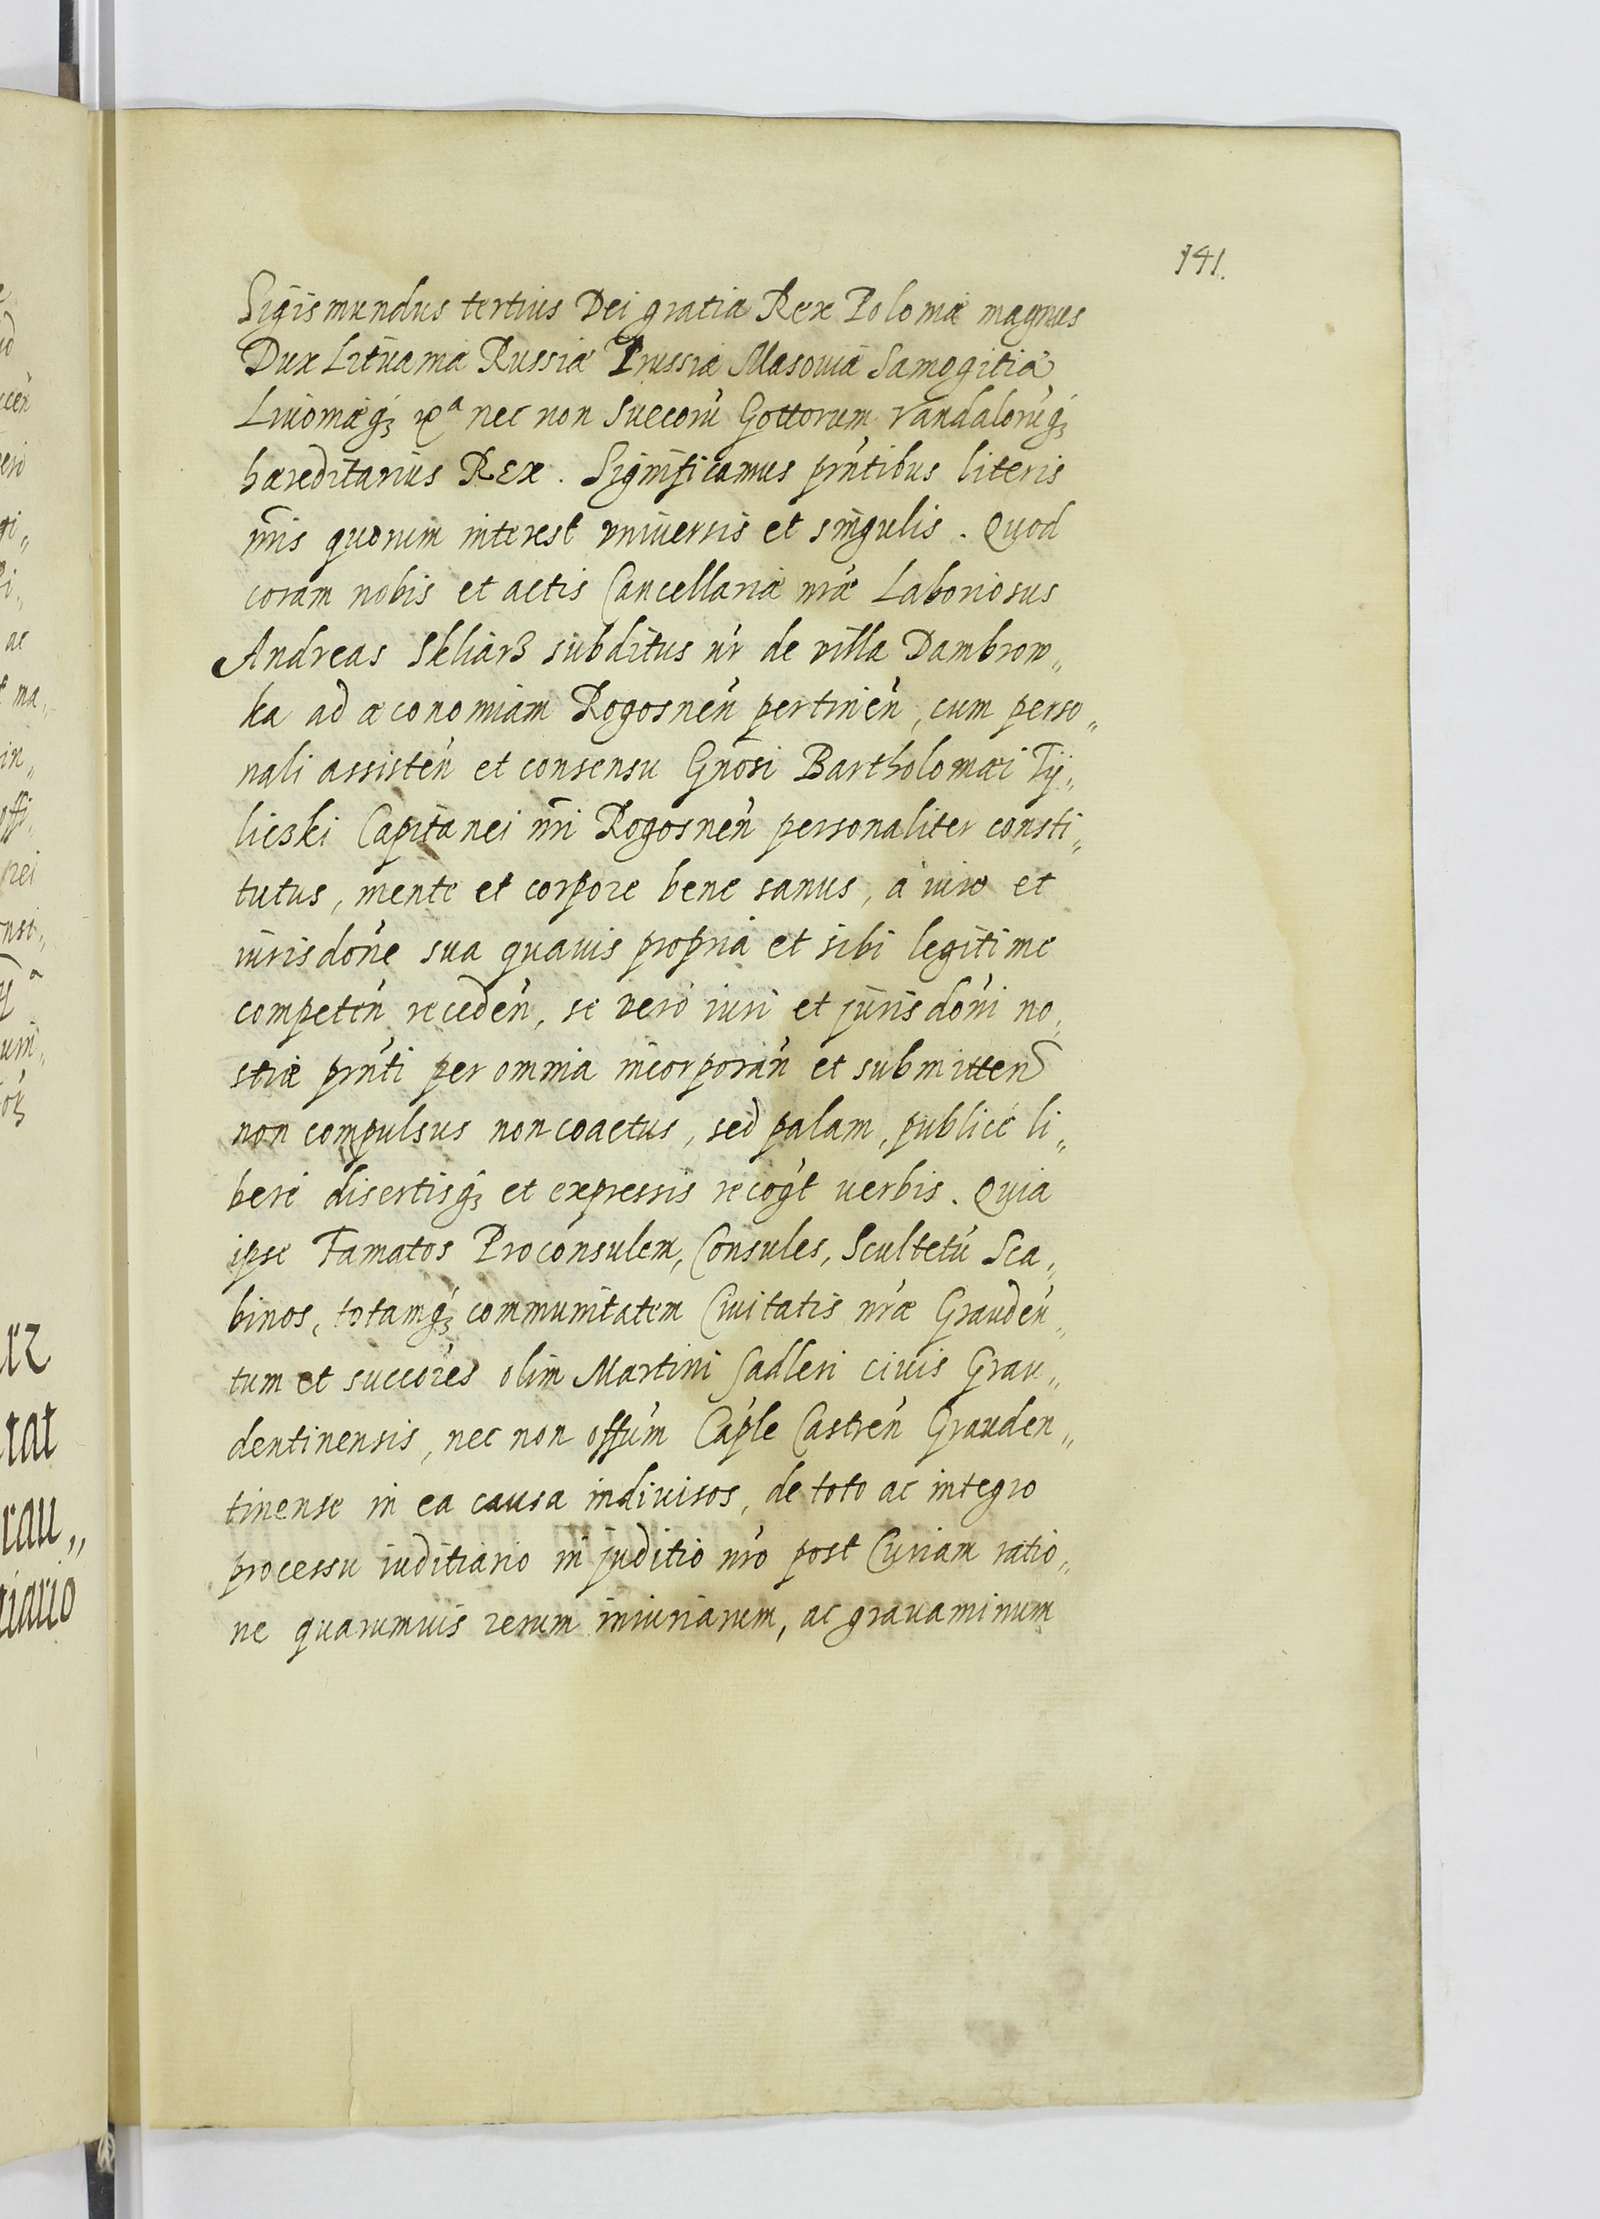 141.
Sigismundus tertius Dei gratia Rex Poloniæ magnus
Dux Lituaniæ Russiæ Prussiæ Masouiæ Samogitiæ
Liuoniæq́ꝫ nec non Suecorū Gottorum Vandalorūq́ꝫ
hæreditarius REx. Significamus pn̄tibus literis
nr̄is quorum interest vniuersis et singulis. Quod
coram nobis et actis Cancellariæ nr̄æ Laboriosus
Andreas Skliarz subditus nr̄ de villa Dambrow„
ka ad œconomiam Rogosnen̄ pertinen̄, cum perso„
nali assisten̄ et consensu Gn̄osi Bartholomæi Ty„
liczki Capitanei nr̄i Rogosnen̄ personaliter consti„
tutus, mente et corpore bene sanus, à iure et
iurisdon̄e sua quauis propria et sibi legitime
competen̄ receden̄, se verò iuri et jurisdon̄i no„
stræ pn̄ti per omnia incorporan̄ et submitten̄
non compulsus non coactus, sed palam, publicè li„
berè disertisq́ꝫ et expressis recoḡt verbis. Quia
ipse Famatos Proconsulem, Consules, Scultetū Sca„
binos, totamq́ꝫ communitatem Ciuitatis nr̄æ Grauden̄„
tum et succor̄es olim Martini Sadleri ciuis Grau„
dentinensis, nec non offūm Cap̄le Castren̄ Grauden„
tinense in ea causa indiuisos, de toto ac integro
processu iuditiario in juditio nr̄o post Curiam ratio„
ne quarumuis rerum iniuriarum, ac grauaminum